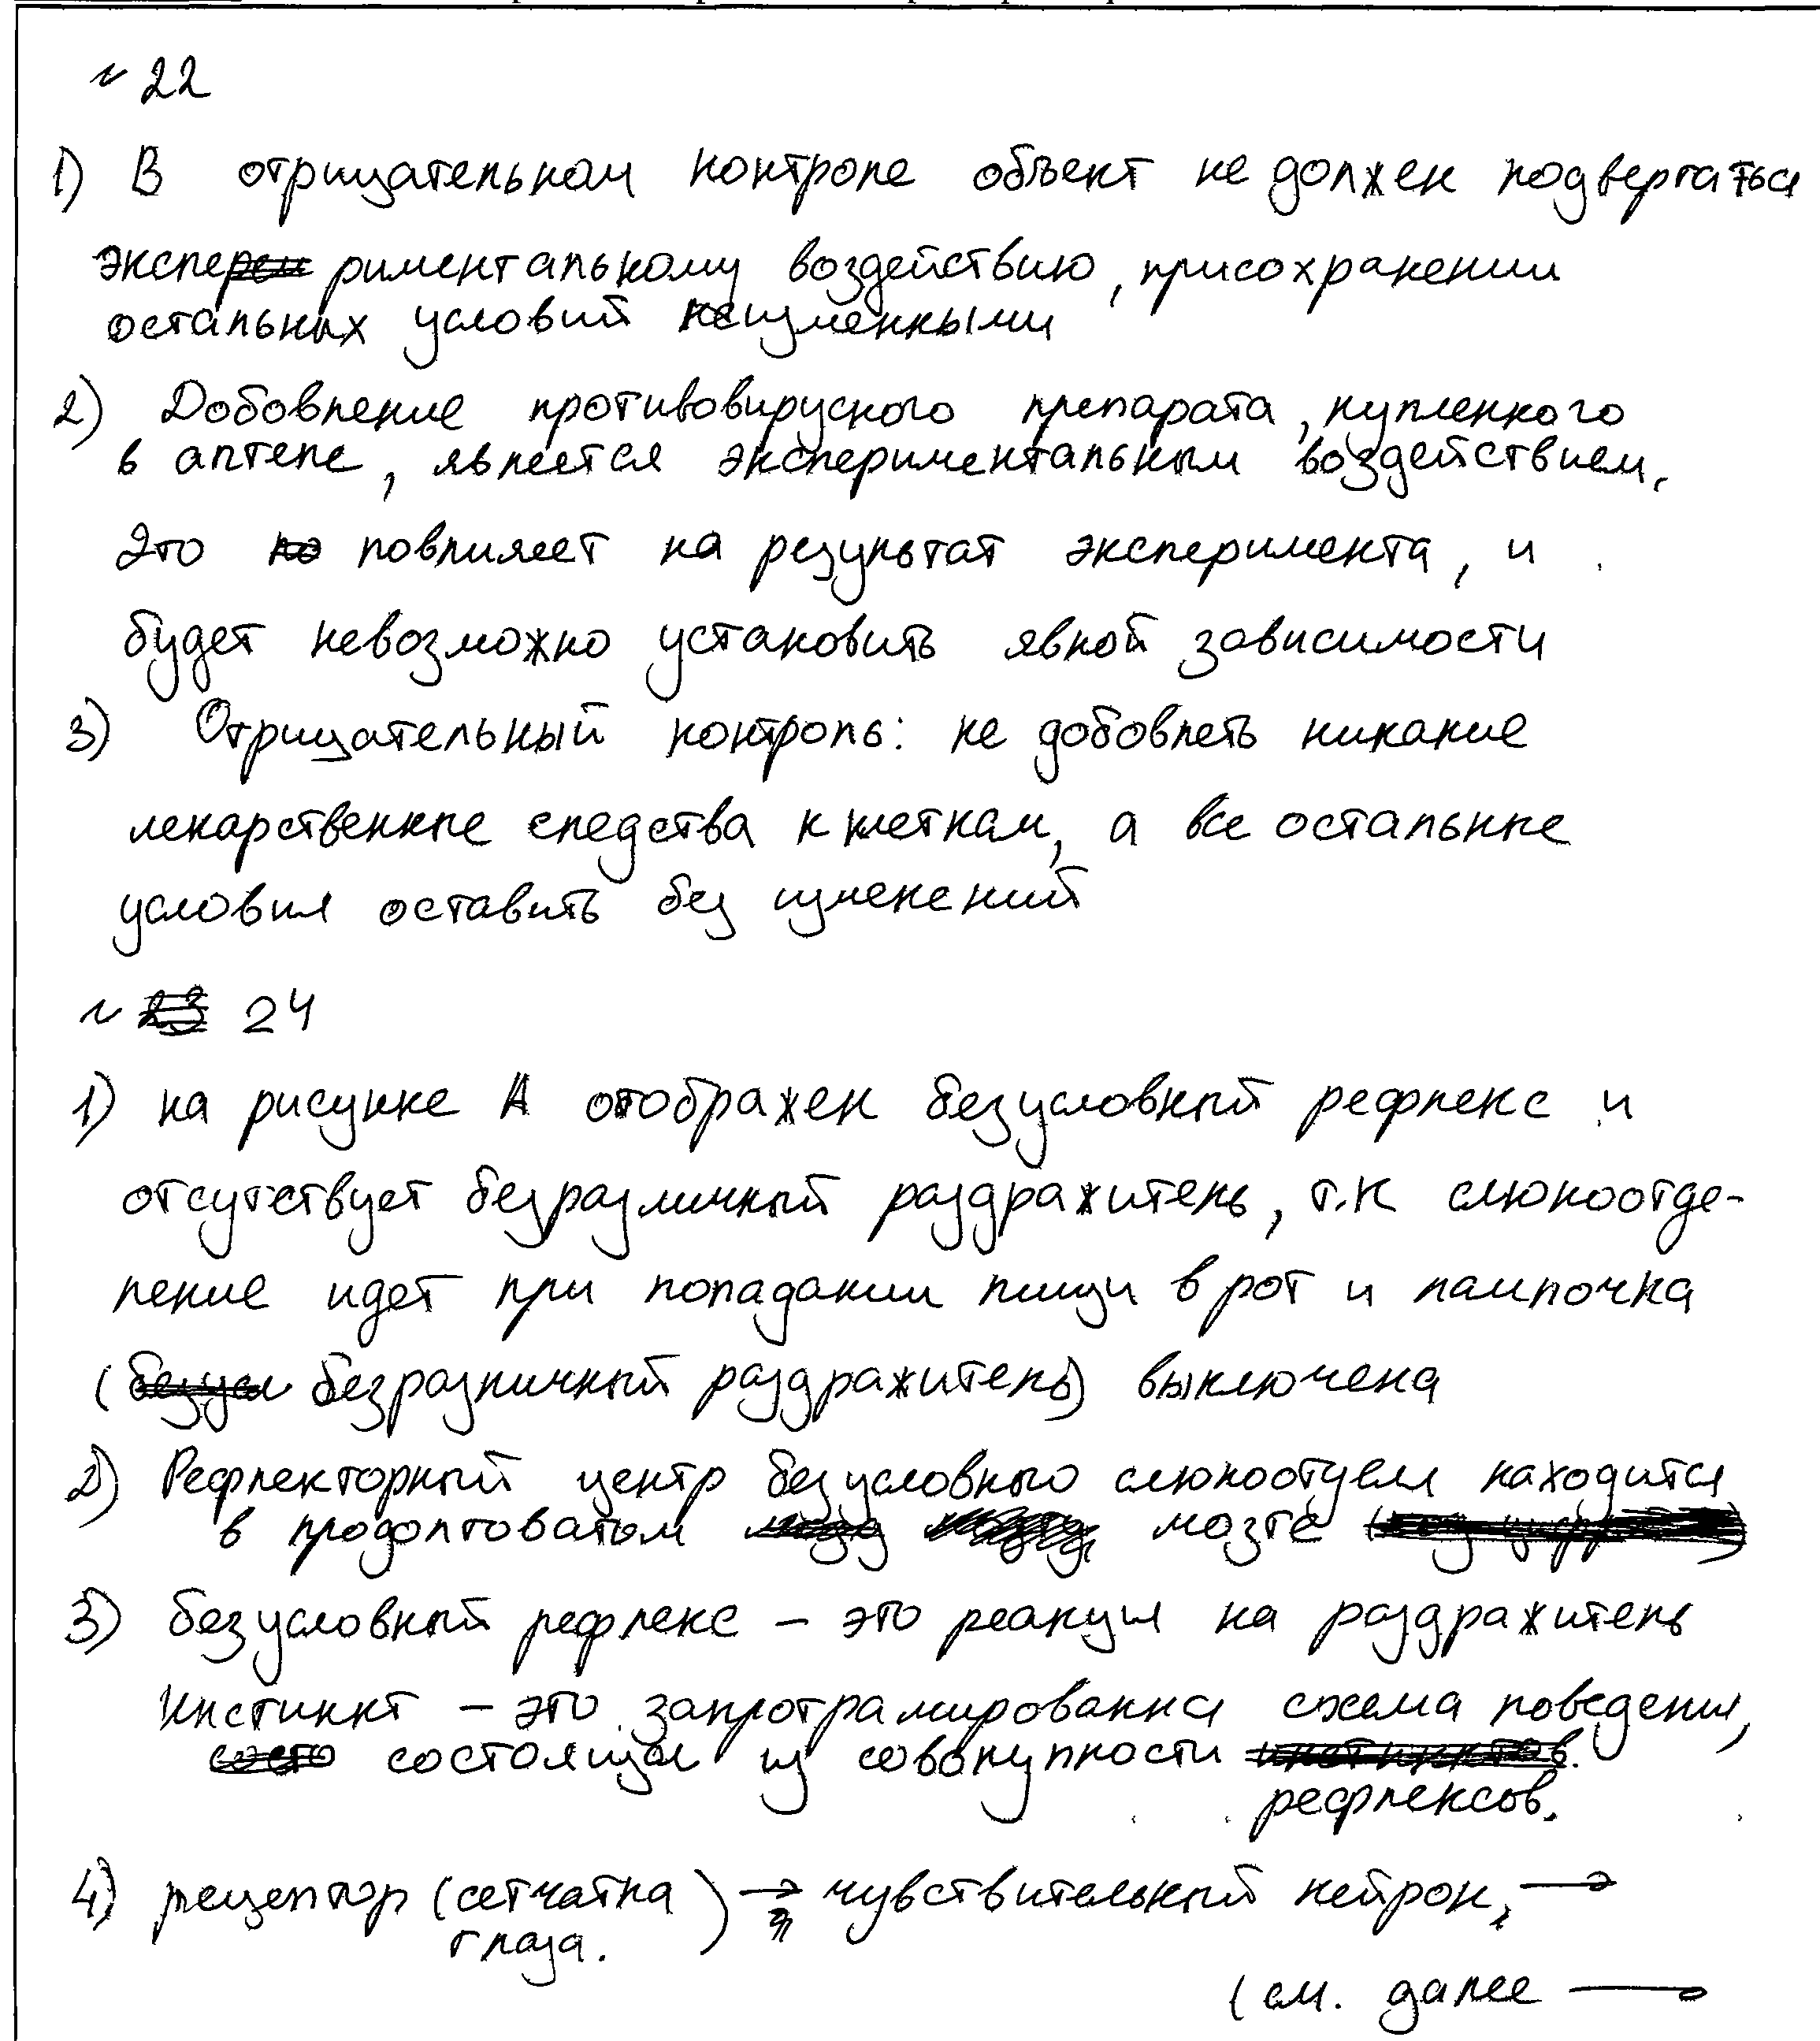 № 22
1) В отрицательном контроле объект не должен подвергаться
экспериментальному воздействию, присохранении
остальных условий неизменными
2) Добовление противовирусного препарата, купленного
в аптеке, явлеется экспериментальным воздействием.
Это повлияет на результат эксперимента, и
будет невозможно установить явной зависимости
3) Отрицательный контроль: не добовлеть никакие
лекарственные спедства к клеткам, а все остальные
условия оставить без изменений
№ 24
1) на рисунке А отображен безусловный рефлекс и
отсутствует безразличный раздражитель, т.к слюноотде-
ление идет при попадании пищи в рот и лампочка
(безразличный раздражитель) выключена
2) Рефлекторный центр безусловного слюноотделя находится
в продолговатом мозге
3) безусловный рефлекс – это реакция на раздражитель
Инстинкт – это запрограмированна схема поведения,
состоящая из совокупности
рефлексов.
4) рецептор (сетчатка → чувствительный нейрон, →
глаза.)
(см. далее →